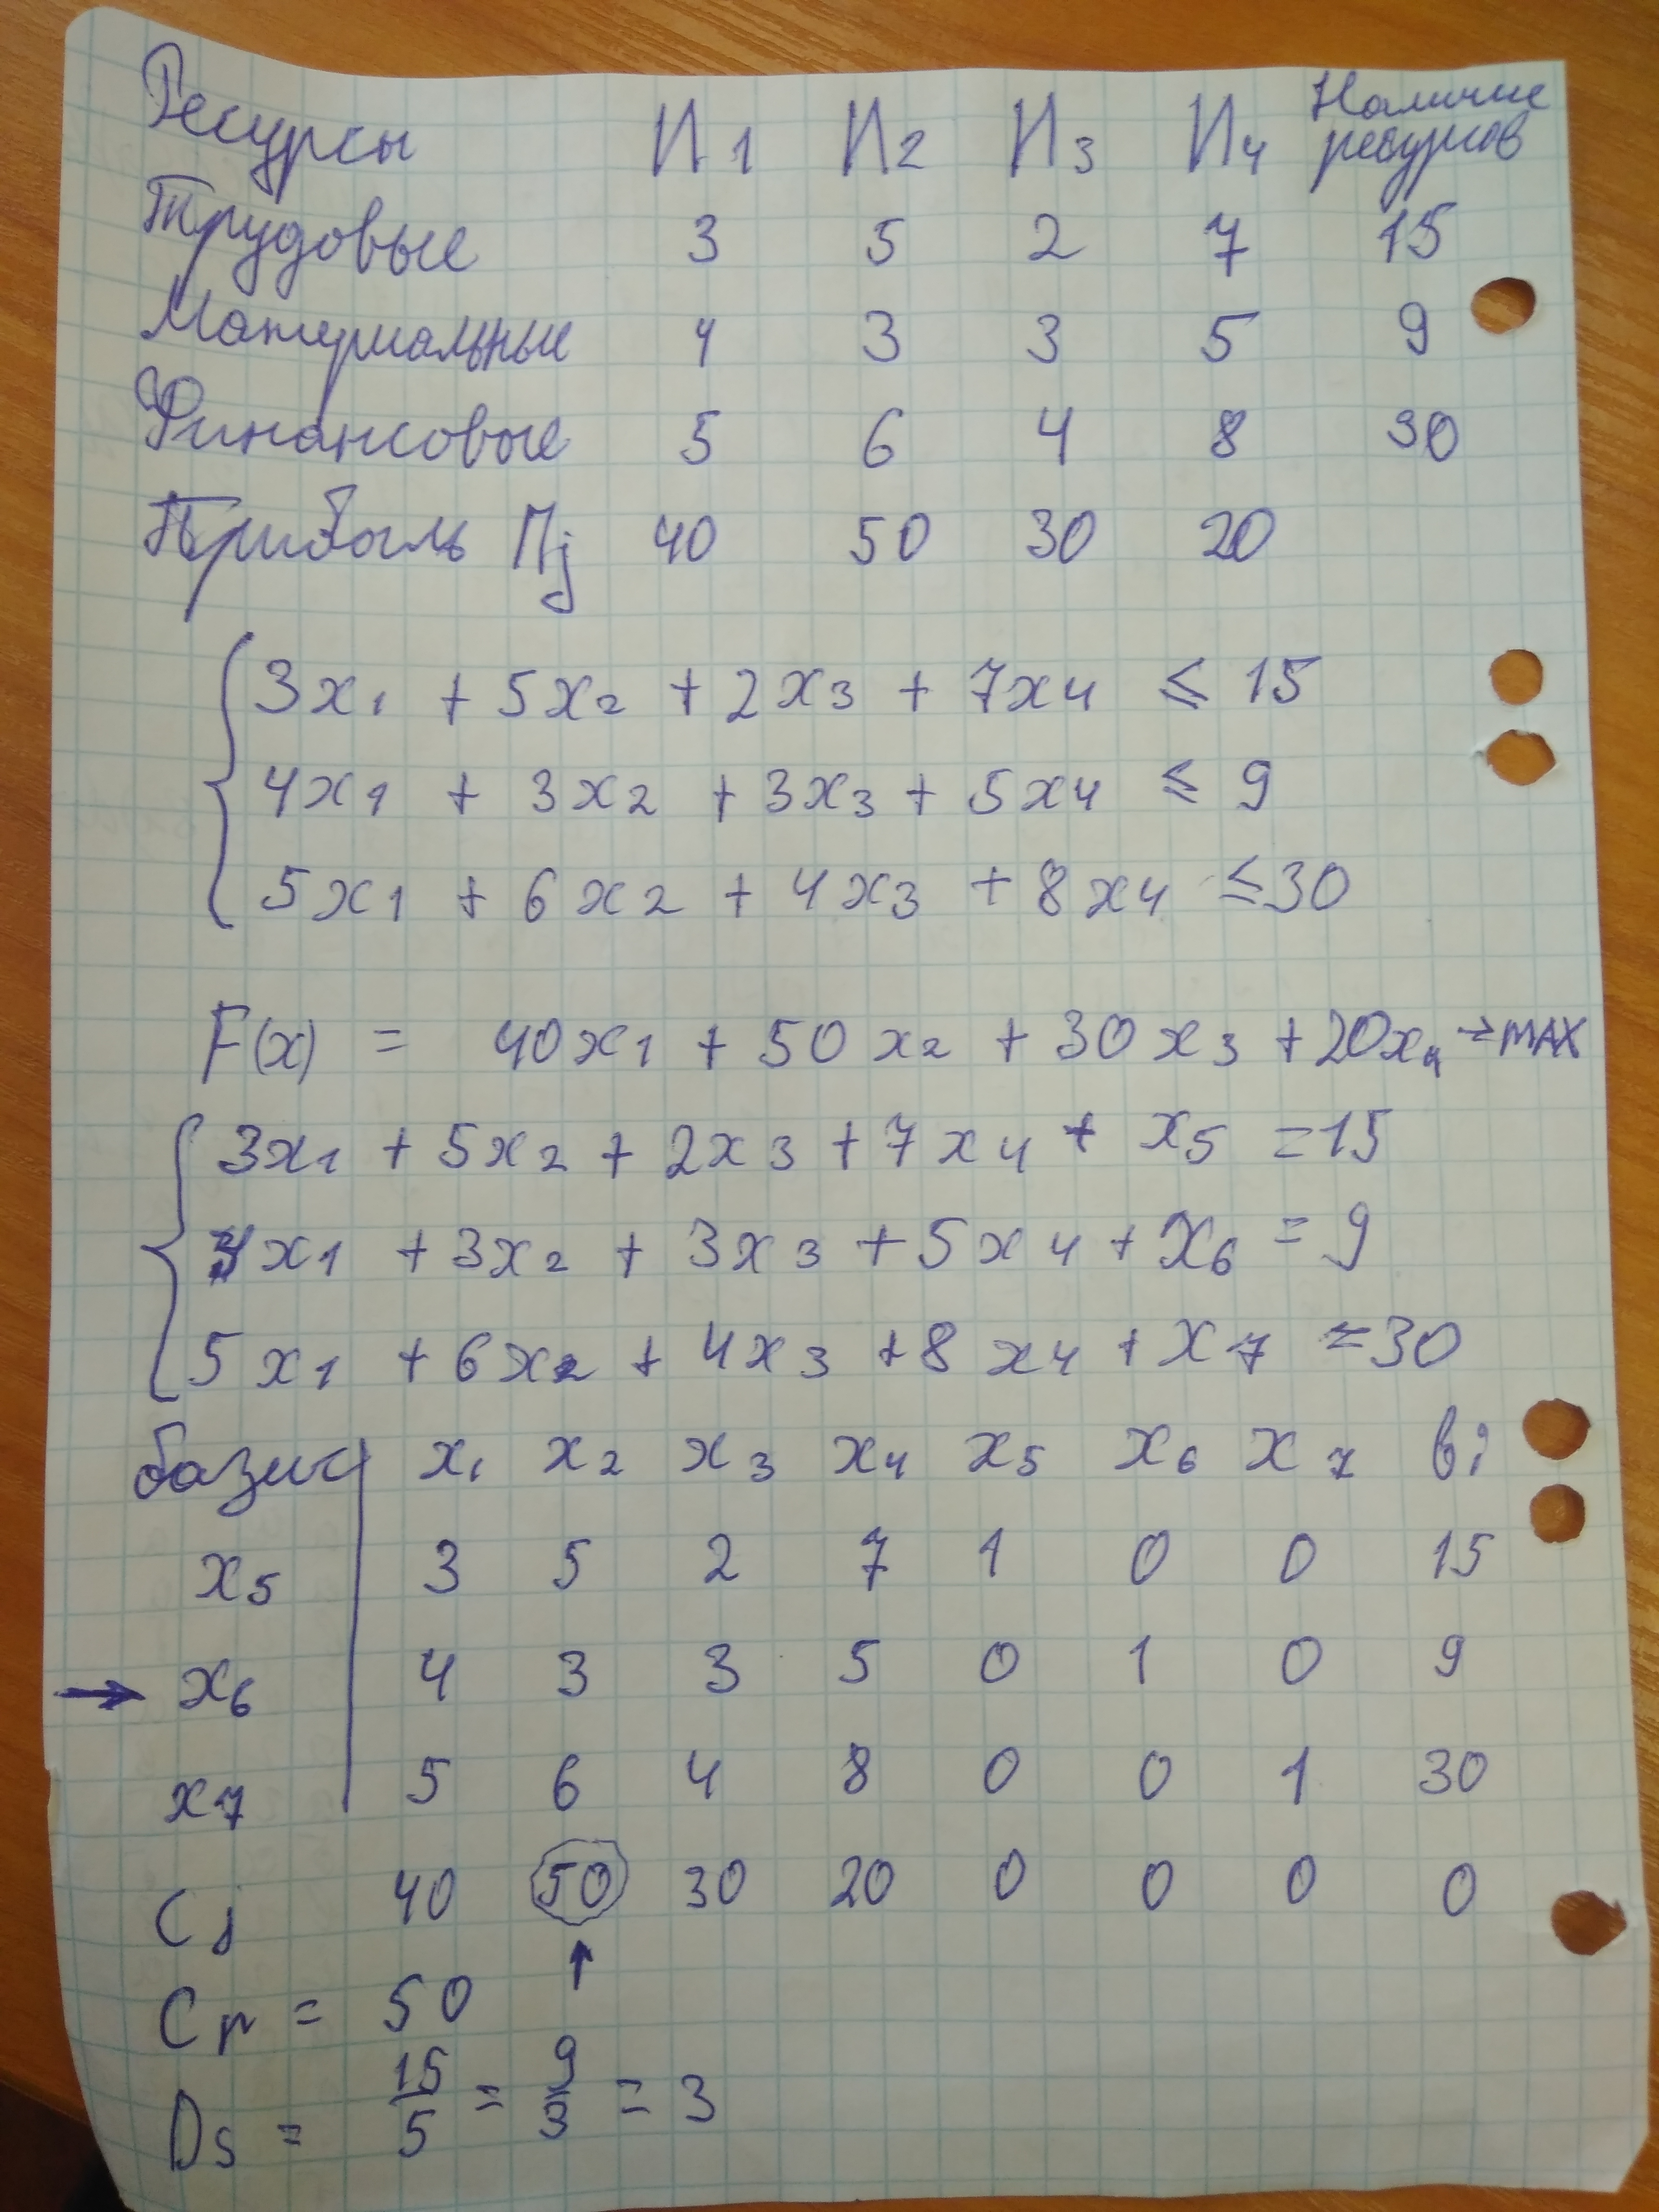 Ресурсы И1 И2 И3 И4 Наличие ресурсов
Трудовые 3 5 2 7 15
Материальные 4 3 3 5 9
Финансовые 5 6 4 8 30
Прибыль Пj 40 50 30 20
3x1 + 5x2 + 2x3 + 7x4 ≤ 15
4x1 + 3x2 + 3x3 + 5x4 ≤ 9
5x1 + 6x2 + 4x3 + 8x4 ≤ 30
F(x) = 40x1 + 50x2 + 30x3 + 20x4 → MAX
3x1 + 5x2 + 2x3 + 7x4 + x5 = 15
4x1 + 3x2 + 3x3 + 5x4 + x6 = 9
5x1 + 6x2 + 4x3 + 8x4 + x7 = 30
базис x1 x2 x3 x4 x5 x6 x7 bi
x5 3 5 2 7 1 0 0 15
→ x6 4 3 3 5 0 1 0 9
x7 5 6 4 8 0 0 1 30
Cj 40 50 30 20 0 0 0 0
↑
Cr = 50
Ds = 15/5 = 9/3 = 3